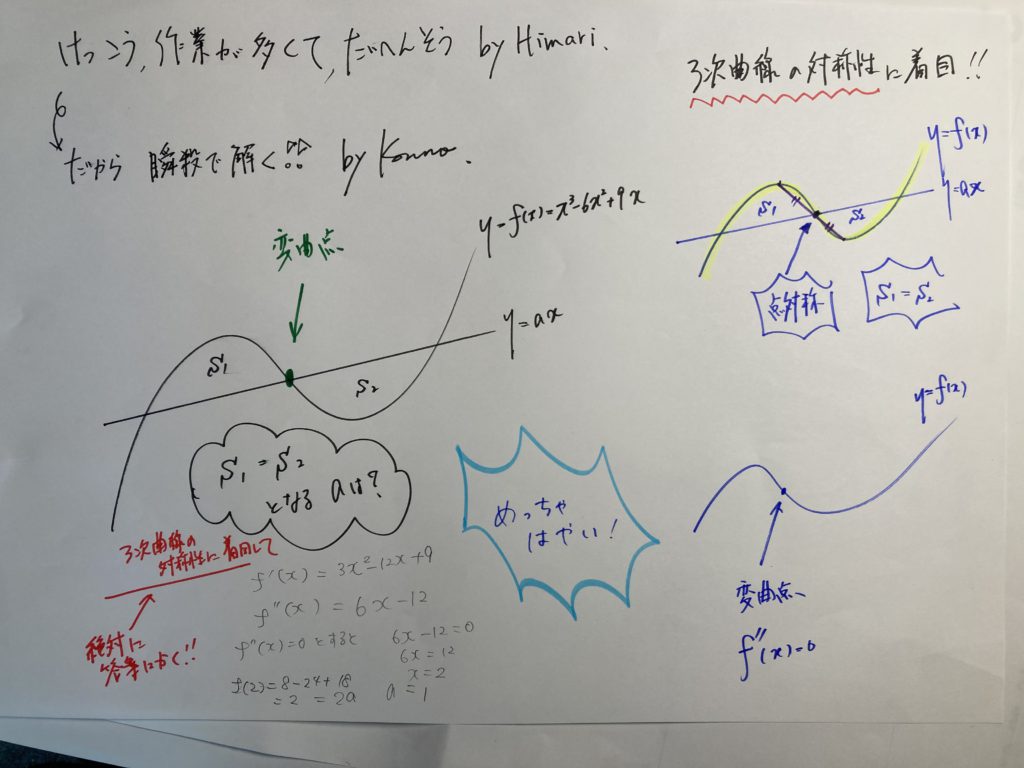 けっこう,作業が多くて,たいへんそう by Himari.
だから 瞬殺で解く!! by Konno.
変曲点
y=f(x)=x³-6x²+9x
y=ax
S₁
S₂
S₁=S₂
となる aは?
3次曲線の
対称性に着目して
絶対に
答案にかく!!
f'(x)=3x²-12x+9
f''(x)=6x-12
f''(x)=0とすると
6x-12=0
6x=12
x=2
f(2)=8-24+18
=2 =2a
a=1
めっちゃ
はやい!
3次曲線の対称性に着目!!
y=f(x)
y=ax
S₁
S₂
点対称
S₁=S₂
y=f(x)
変曲点
f''(x)=0